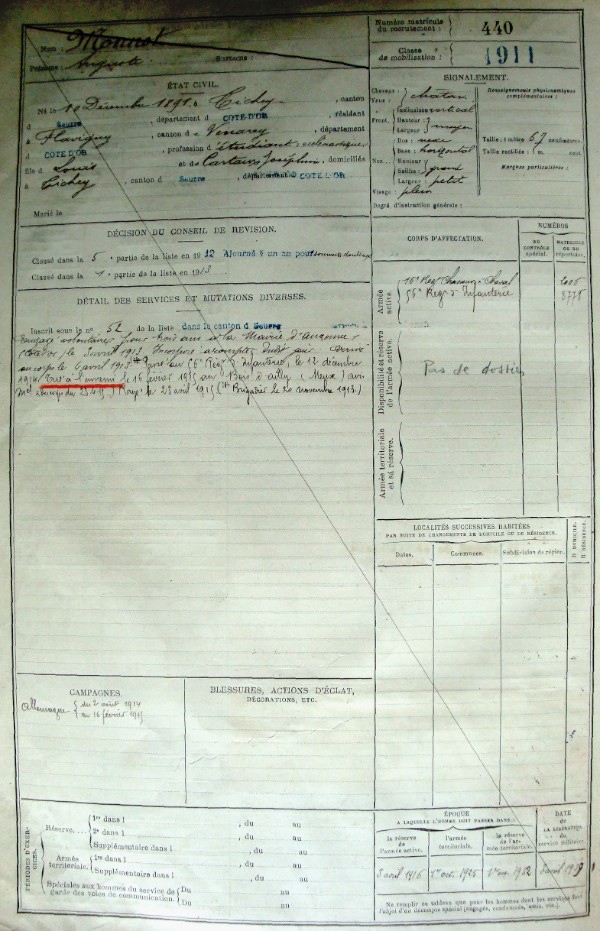 Numéro matricule du recrutement : 440
Classe de mobilisation : 1911
Nom : Monnot
Prénoms : Auguste Surnoms :
ÉTAT CIVIL.
Né le 10 Décembre 1891, à Tichey, canton
d Seurre, département d COTE D'OR, résidant
à Flavigny, canton d Venarey, département
d COTE D'OR, profession d'étudiant ecclésiastique
fils d Louis et de Joséphin, domiciliés
à Tichey, canton d Seurre, département d COTE D'OR
Marié le
SIGNALEMENT.
Cheveux : chatain
Yeux :
Front. Inclinaison : vertical
Hauteur : moyen
Largeur :
Nez... Dos :
Base : horizontal
Hauteur :
Saillie : grand
Largeur : petit
Visage : plein
Renseignements physionomiques complémentaires :
Taille : 1 mètre 67 centimètres.
Taille rectifiée : 1 m. cent.
Marques particulières :
Degré d'instruction générale :
DÉCISION DU CONSEIL DE REVISION.
Classé dans la 5e partie de la liste en 1912 Ajourné à un an pour
Classé dans la 1e partie de la liste en 1913
DÉTAIL DES SERVICES ET MUTATIONS DIVERSES.
Inscrit sous le n° 52 de la liste dans le canton d Seurre
Engagé volontaire pour trois ans à la Mairie d'Auxonne
le 5 avril 1913. Incorporé à compter dudit jour. Arrivé
au corps le 6 avril 1913. Passé au 56e Régt d'Infanterie, le 12 décembre
1914. Tué à l'ennemi le 16 février 1915 au Bois d'Ailly (Meuse) avis
Rayé le 23 avril 1915 (Brigadier le 20 novembre 1913.)
CORPS D'AFFECTATION.
NUMÉROS
AU CONTRÔLE SPÉCIAL.
MATRICULE OU AU RÉPERTOIRE.
Armée active.
16e Régt Chasseurs à Cheval
56e Regt d'Infanterie
Disponibilité et réserve de l'armée active.
Pas de dossier
Armée territoriale et sa réserve.
LOCALITÉS SUCCESSIVES HABITÉES
PAR SUITE DE CHANGEMENTS DE DOMICILE OU DE RÉSIDENCE.
Dates. Communes. Subdivision de région. D DOMICILE. R RÉSIDENCE.
CAMPAGNES.
Allemagne { du 2 août 1914
au 16 février 1915
BLESSURES, ACTIONS D'ÉCLAT,
DÉCORATIONS, ETC.
PÉRIODES D'EXERCICES.
Réserve. .... 1re dans l , du au
2e dans l , du au
Supplémentaire dans l , du au
Armée territoriale. 1re dans l , du au
Supplémentaire dans l , du au
Spéciales aux hommes du service de garde des voies de communication. Du au
Du au
ÉPOQUE
A LAQUELLE L'HOMME DOIT PASSER DANS
la réserve de l'armée active. l'armée territoriale. la réserve de l'armée territoriale.
DATE de LA LIBÉRATION du service militaire.
5 avril 1916 1er oct. 1925 1er oct. 1932 5 avril 1939
Ne remplir ce tableau que pour les hommes dont les services font l'objet d'un décompte spécial (engagés, condamnés, omis, etc.).